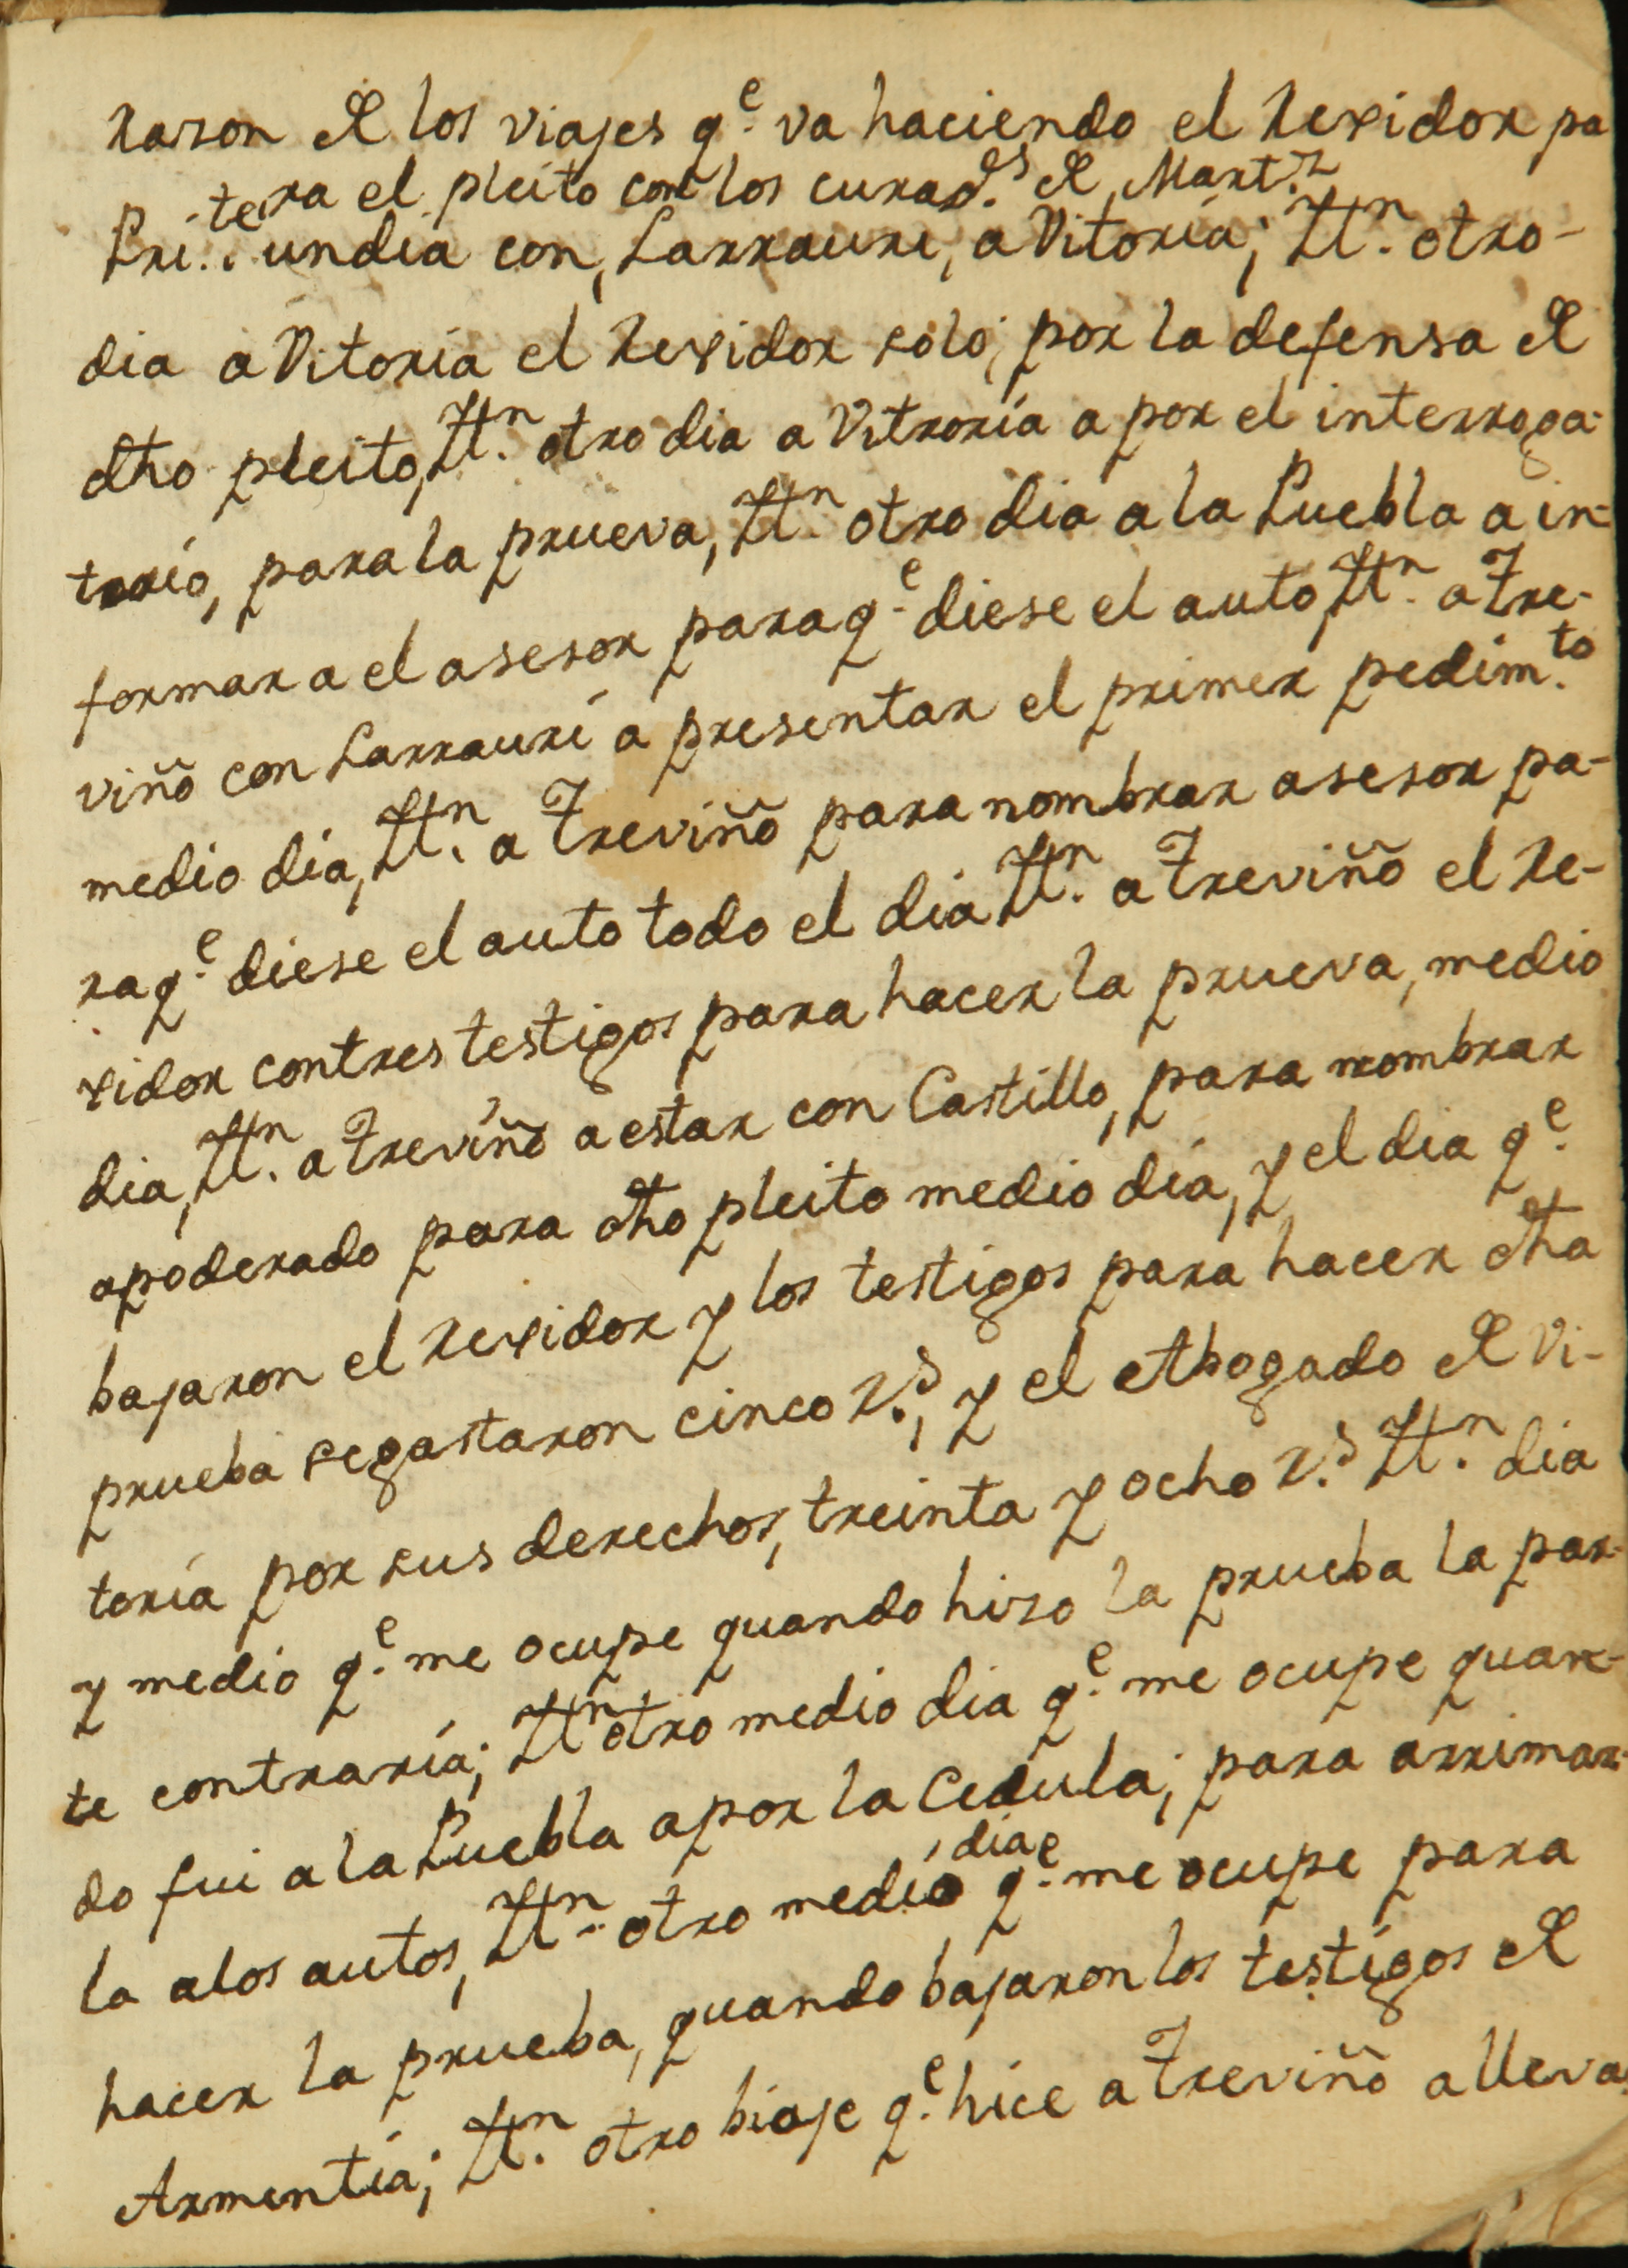 Razon de los viajes q.e va haciendo el Rexidor pa
ra el pleito con los curad.es de Mart.z
Pri.te undia con, Larrauri, a Vitoria; Yt.n otro-
dia a Vitoria el Rexidor solo, por la defensa de
dho pleito, Yt.n otro dia a Vitroria a por el interroga-
torio, para la prueva, Yt.n otro dia a la Puebla a in-
formar a el asesor para q.e diese el auto, Yt.n a Tre-
viño con Larrauri a presentar el primer pedim.to
medio dia, Yt.n a Treviño para nombrar asesor pa-
ra q.e diese el auto todo el dia Yt.n a Treviño el Re-
xidor contres testigos para hacer la prueva, medio
dia, Yt.n a Treviño a estar con Castillo, para nombrar
apoderado para dho pleito medio dia, y el dia q.e
bajaron el Rexidor y los testigos para hacer dha
prueba segastaron cinco R.s, y el Abogado de Vi-
toria por sus derechos, treinta y ocho R.s Yt.n dia
y medio q.e me ocupe quando hizo la prueba la par-
te contraria; Yt.n otro medio dia q.e me ocupe quan-
do fui a la Puebla apor la Cedula; para arrimar-
la alos autos, Yt.n otro medio dia q.e me ocupe para
hacer la prueba, quando bajaron los testigos de
Armentia; Yt.n otro biaje q.e hice a Treviño a lleva